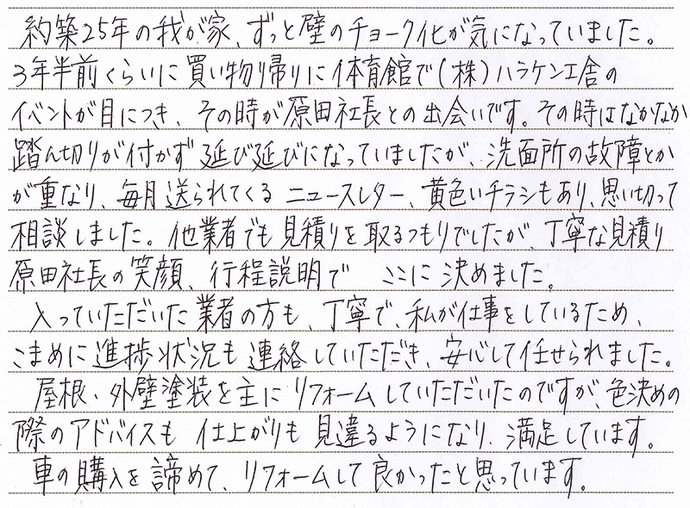 約築25年の我が家、ずっと壁のチョーク化が気になっていました。
3年半前くらいに買い物帰りに体育館で(株)ハラケン工舎の
イベントが目につき、その時が原田社長との出会いです。その時はなかなか
踏ん切りが付かず延び延びになっていましたが、洗面所の故障とか
が重なり、毎月送られてくるニュースレター、黄色いチラシもあり、思い切って
相談しました。他業者でも見積りを取るつもりでしたが、丁寧な見積り
原田社長の笑顔、行程説明で ここに決めました。
入っていただいた業者の方も、丁寧で、私が仕事をしているため、
こまめに進捗状況も連絡していただき、安心して任せられました。
屋根・外壁塗装を主にリフォームしていただいたのですが、色決めの
際のアドバイスも 仕上がりも見違るようになり、満足しています。
車の購入を諦めて、リフォームして良かったと思っています。